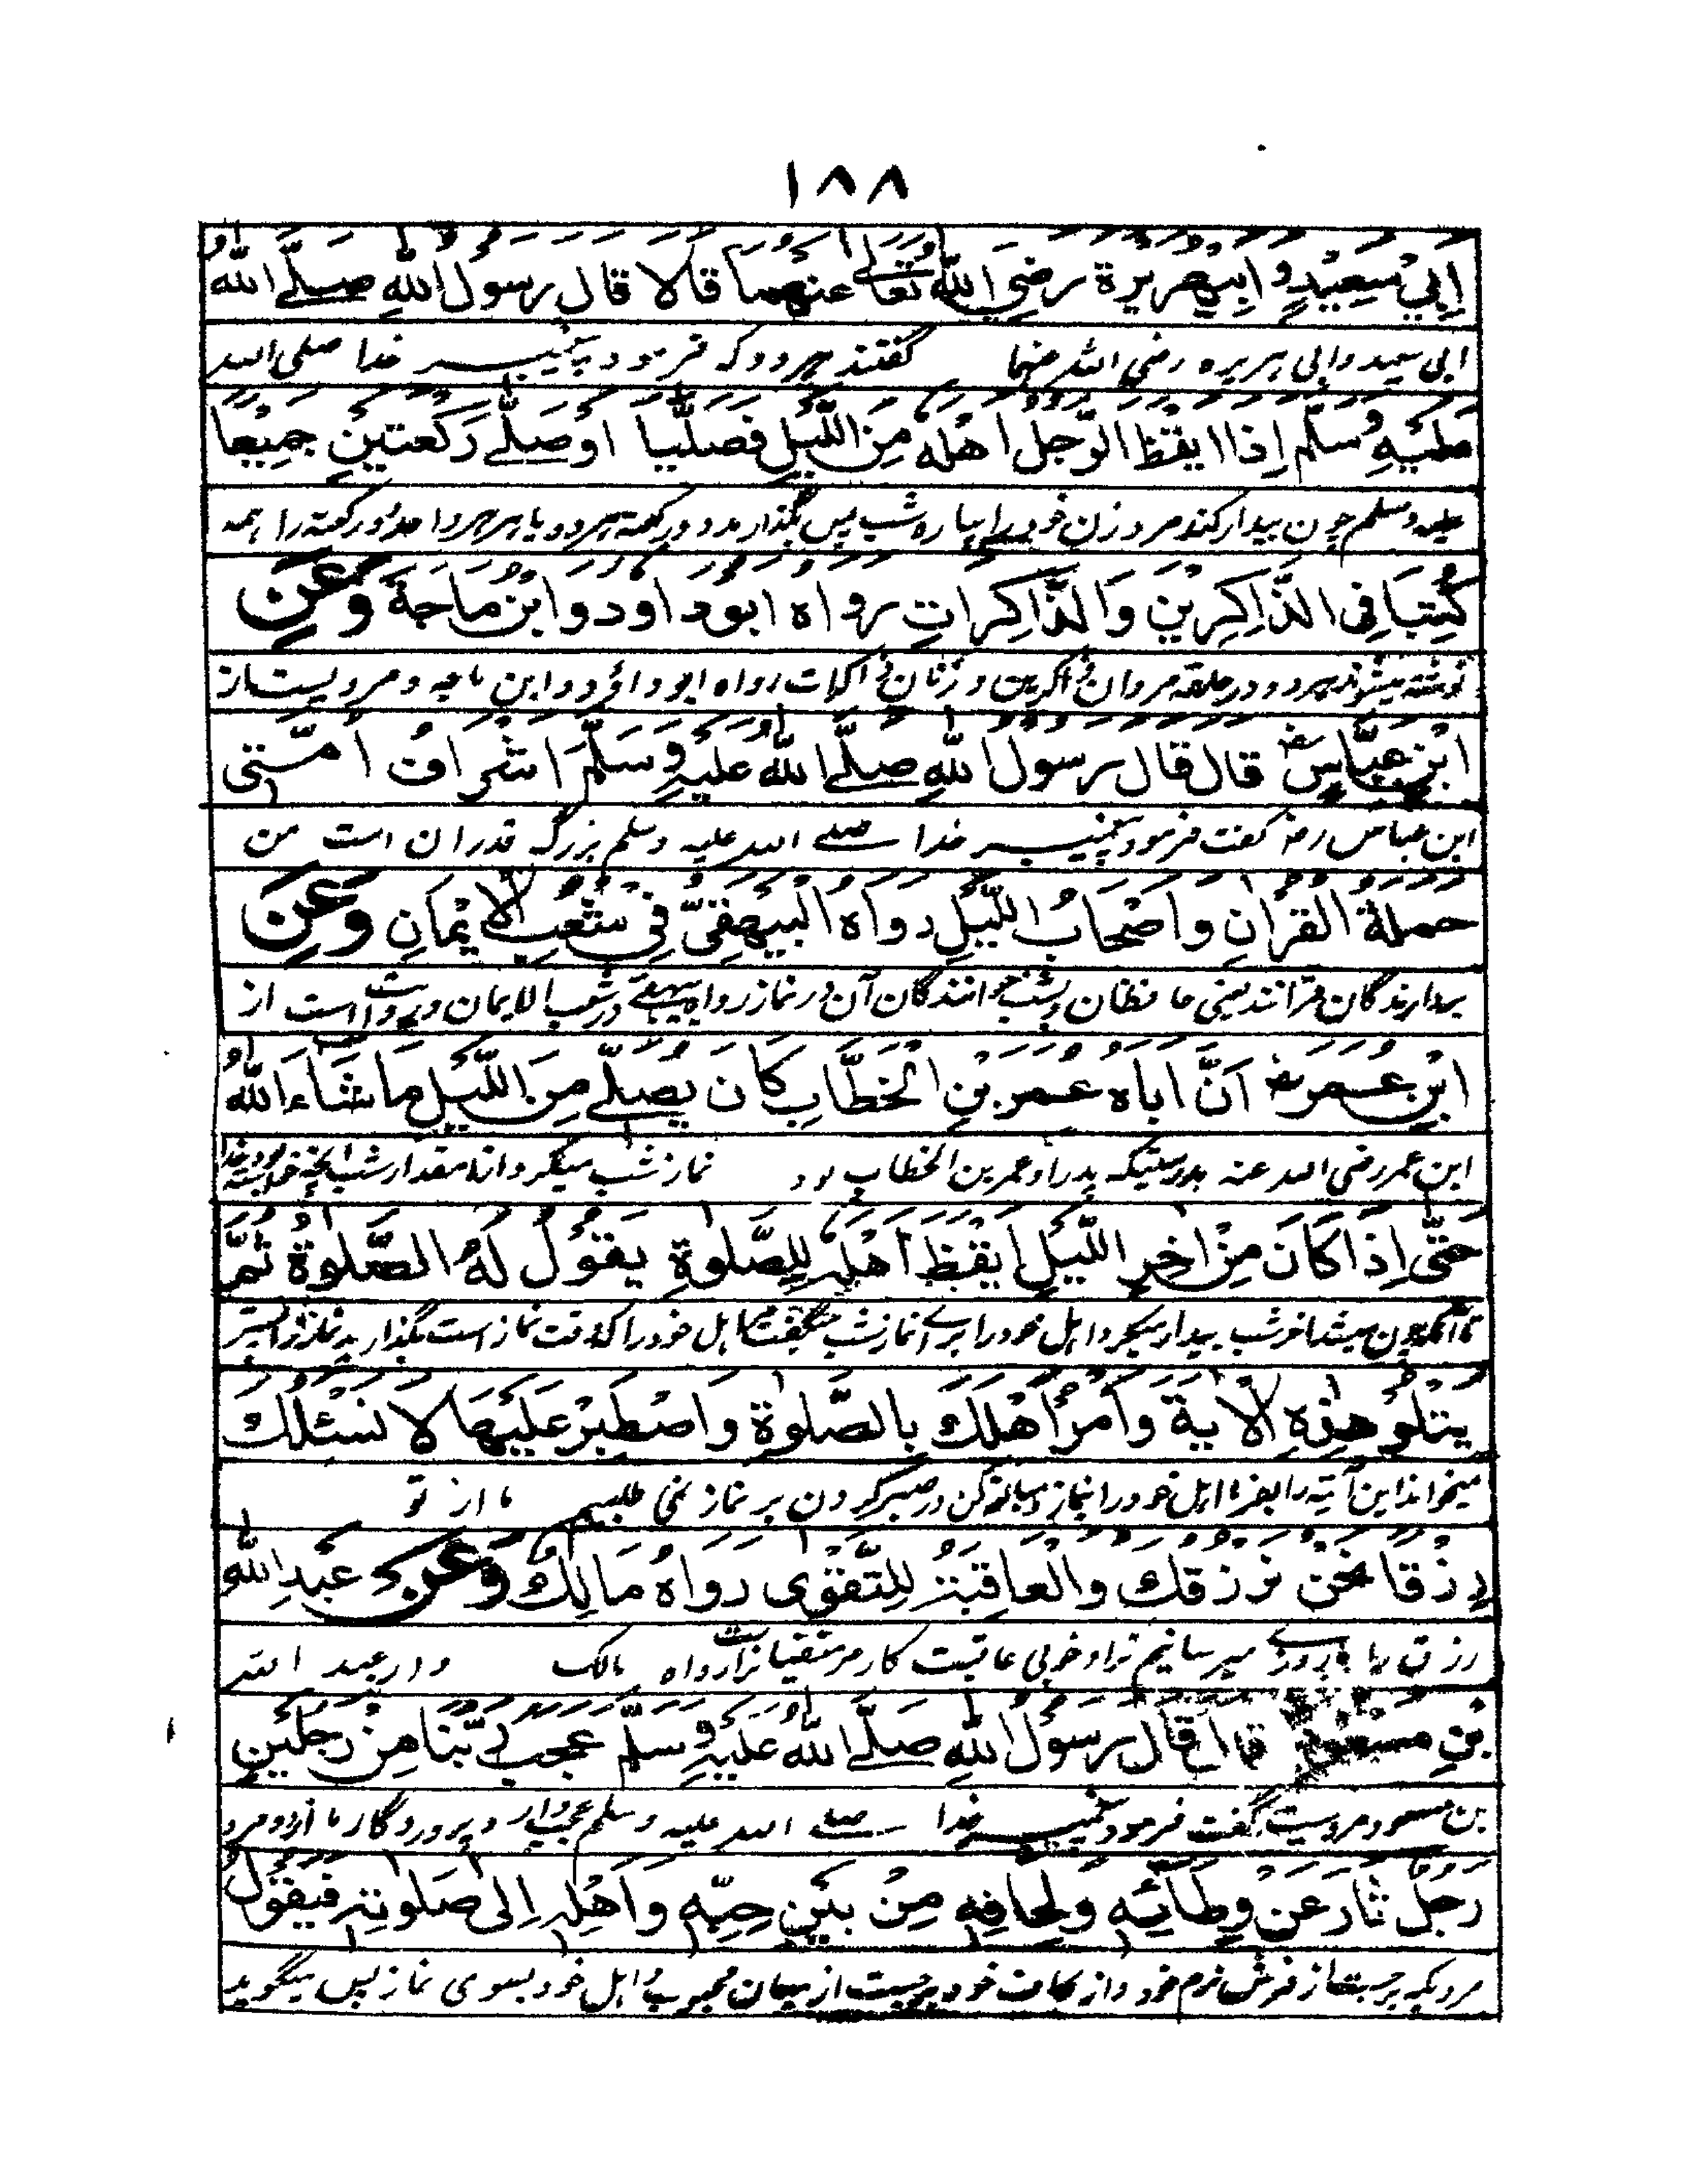 ١٨٨
اَبِيْ سَعِيْدٍ وَاَبِيْهُرَيْرَةَ رَضِيَ اللّٰهُ تَعَالٰى عَنْهُمَا قَالَا قَالَ رَسُوْلُ اللّٰهِ صَلَّے اللّٰهُ
ابی سعید وابی ہریرہ رضی اللہ عنہما گفتند ہردو کہ فرمود پیغمبر خدا صلی اللہ
عَلَيْهِ وَسَلَّمَ اِذَا اَيْقَظَ الرَّجُلُ اَهْلَهُ مِنَ اللَّيْلِ فَصَلَّيَا اَوْ صَلَّے رَكْعَتَيْنِ جَمِيْعًا
علیہ وسلم چون بیدار کند مرد زن خود را پارہ شب پس بگذارد دو رکعت ہردو یا ہر دو رکعت را ہمہ
كُتِبَا فِى الذَّاكِرِيْنَ وَالذَّاكِرَاتِ رواه ابو داود وابْنُ ماجَةَ وَعَنِ
نوشتہ میشوند ہردو در مردان ذاکرین و زنان ذاکرات رواہ ابو داؤد وابن ماجہ و مرویست از
ابْنِ عَبَّاسٍ رض قَالَ قَالَ رَسُوْلُ اللّٰهِ صَلَّے اللّٰهُ عَلَيْهِ وَسَلَّمَ اَشْرَافُ اُمَّتِى
ابن عباس رض گفت فرمود پیغمبر خدا صلے اللہ علیہ وسلم بزرگ قدران است من
حَمَلَةُ الْقُرْاٰنِ وَاَصْحَابُ اللَّيْلِ رَوَاهُ الْبَيْهَقِىُّ فِىْ شُعَبِ الْاِيْمَانِ وَعَنِ
بردارندگان قرآنند یعنی حافظان و شب خوانندگان آن در نماز رواہ بیہقے در شعب الایمان و روایت است از
ابْنِ عُمَرَ رض اَنَّ اَبَاهُ عُمَرَ بْنِ الْخَطَّابِ كَانَ يُصَلِّے مِنَ اللَّيْلِ مَا شَاءَ اللّٰهُ
ابن عمر رضی اللہ عنہ بدرستیکہ پدر او عمر بن الخطاب بود نماز شب میکرد مقدار شب آنچہ خواستہ بود خدا
حَتّٰى اِذَا كَانَ مِنْ اٰخِرِ اللَّيْلِ اَيْقَظَ اَهْلَهُ لِلصَّلٰوةِ يَقُوْلُ لَهُمُ الصَّلٰوةُ ثُمَّ
تا آنکہ چون میشد آخر شب بیدار میکرد اہل خود را براے نماز شب میگفت اہل خود را کہ وقت نماز است بگذارید نماز را پستر
يَتْلُوْ هٰذِهِ الْاٰيَةَ وَاْمُرْ اَهْلَكَ بِالصَّلٰوةِ وَاصْطَبِرْ عَلَيْهَا لَا نَسْئَلُكَ
میخواند این آیتہ را بفرما اہل خود را بنماز و مبالغہ کن در صبر کردن بر نماز نمی طلبیم ما از تو
رِزْقًا نَحْنُ نَرْزُقُكَ وَالْعَاقِبَةُ لِلتَّقْوٰى رَوَاهُ مَالِكٌ وَعَنْ عَبْدِ اللّٰهِ
رزق ما روزی میرسانیم ترا و خوبی عاقبت کار مر متقیانراست رواہ مالک و از عبد اللہ
بْنِ مَسْعُوْدٍ قَالَ قَالَ رَسُوْلُ اللّٰهِ صَلَّے اللّٰهُ عَلَيْهِ وَسَلَّمَ عَجِبَ رَبُّنَا مِنْ رَجُلَيْنِ
بن مسعود مرویست گفت فرمود پیغمبر خدا صلے اللہ علیہ وسلم پروردگار ما از دو مرد
رَجُلٌ ثَارَ عَنْ وِطَائِهٖ وَلِحَافِهٖ مِنْ بَيْنِ حِبِّهٖ وَاَهْلِهٖ اِلٰى صَلٰوتِهٖ فَيَقُوْلُ
مردیکہ برجست از فرش نرم خود و از لحاف خود برجست از میان محبوب و اہل خود بسوی نماز پس میگوید